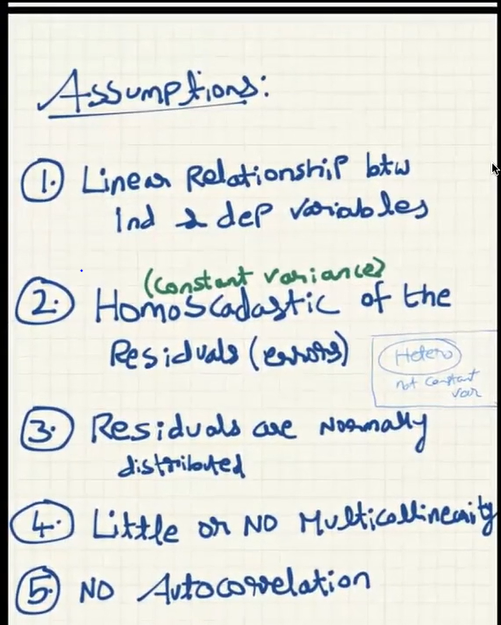 Assumptions:
1. Linear Relationship btw
Ind & dep variables
(constant variance)
2. Homoscadastic of the
Residuals (errors)
Hetero
not constant
var
3. Residuals are Normally
distributed
4. Little or No Multicollinearity
5. NO Autocorrelation